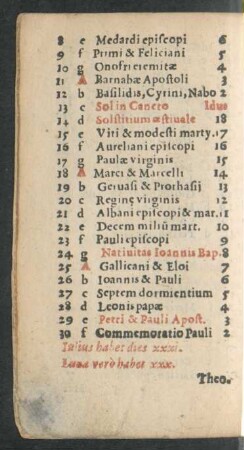 8 e Medardi episcopi 6
9 f Primi & Feliciani 5
10 g Onofri eremitæ 4
11 A Barnabæ Apostoli 3
12 b Basilidis, Cyrini, Nabo 2
13 c Sol in Cancro Idus
14 d Solstitium æstiuale 18
15 e Viti & modesti marty. 17
16 f Aureliani episcopi 16
17 g Paulæ virginis 15
18 A Marci & Marcelli 14
19 b Geruasi & Prothasij 13
20 c Reginę virginis 12
21 d Albani episcopi & mar. 11
22 e Decem miliū mart. 10
23 f Pauli episcopi 9
24 g Natiuitas Ioannis Bap. 8
25 A Gallicani & Eloi 7
26 b Ioannis & Pauli 6
27 c Septem dormientium 5
28 d Leonis papæ 4
29 e Petri & Pauli Apost. 3
30 f Commemoratio Pauli 2
Iulius habet dies xxxi.
Luna verò habet xxx.
Theo.